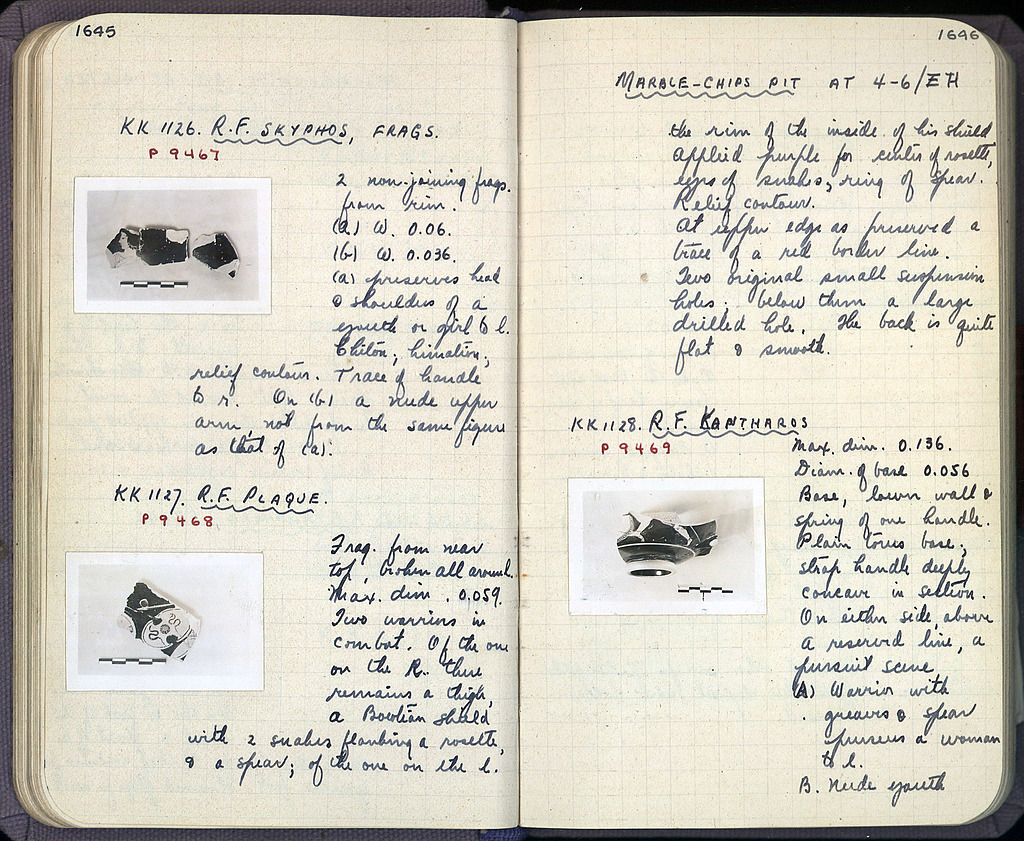 1645
KK 1126. R.F. SKYPHOS, FRAGS.
P 9467
2 non-joining frags.
from rim.
(a) W. 0.06.
(b) W. 0.036.
(a) preserves head
& shoulders of a
youth or girl to l.
Chiton, himation,
relief contour. Trace of handle
to r. On (b) a nude upper
arm, not from the same figure
as that of (a).
KK 1127. R.F. PLAQUE.
P 9468
Frag. from near
top, broken all around.
Max. dim. 0.059.
Two warriors in
combat. Of the one
on the R. there
remains a thigh,
a Boeotian shield
with 2 snakes flanking a rosette,
& a spear; of the one on the l.
1646
MARBLE-CHIPS PIT AT 4-6/EH
the rim of the inside of his shield
applied purple for center of rosette,
eyes of snakes, ring of spear.
Relief contour.
At upper edge as preserved a
trace of a red border line.
Two original small suspension
holes; below them a large
drilled hole. The back is quite
flat & smooth.
KK 1128. R.F. KANTHAROS
P 9469
Max. dim. 0.136.
Diam. of base 0.056
Base, lower wall &
spring of one handle.
Plain torus base;
strap handle deeply
concave in section.
On either side, above
a reserved line, a
pursuit scene
A) Warrior with
greaves & spear
pursues a woman
to l.
B. Nude youth